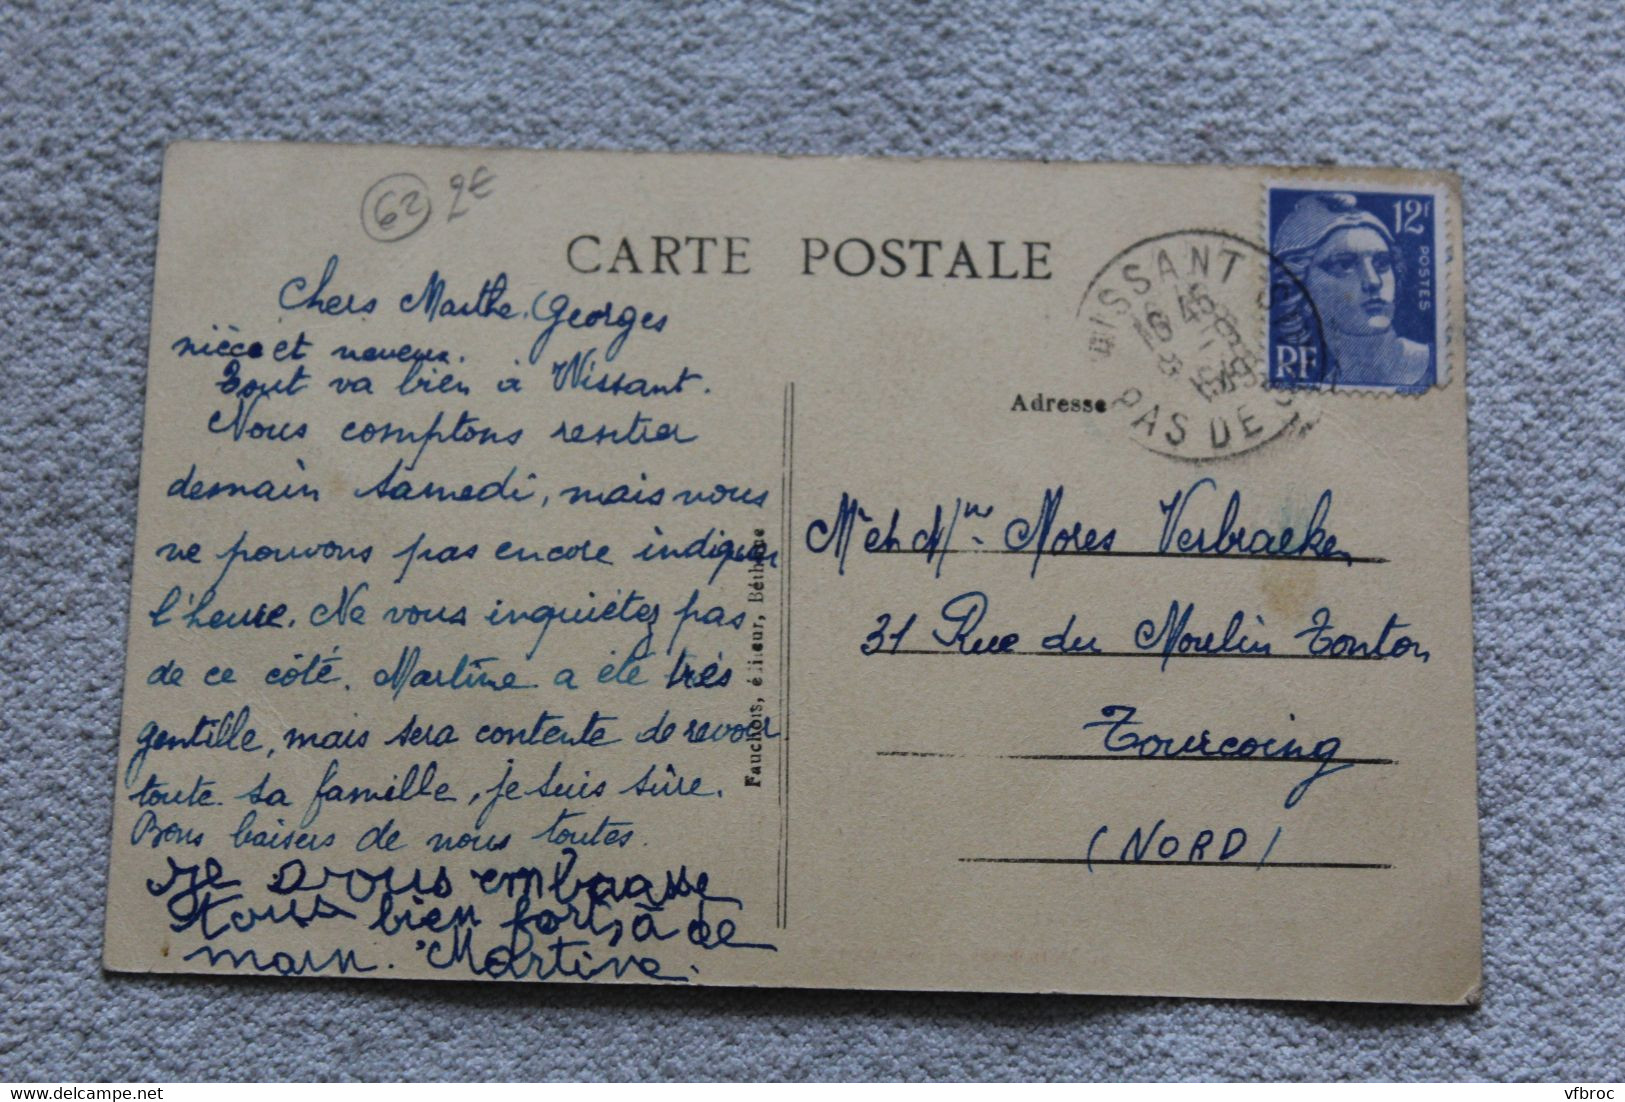 62 2€
CARTE POSTALE
Chers Marthe, Georges
nièce et neveux.
Tout va bien à Wissant.
Nous comptons rentrer
demain samedi, mais nous
ne pouvons pas encore indiquer
l'heure. Ne vous inquiétez pas
de ce côté. Martine a été très
gentille, mais sera contente de revoir
toute sa famille, je suis sûre.
Bons baisers de nous toutes.
Je vous embrasse
tous bien fort, à de
main. Martine.
Fauchois, éditeur, Béthune
WISSANT
16 45
8
PAS DE
12f
POSTES
RF
Adresse
Mr et Mme Mores Verbraeken
31 Rue du Moulin Tonton
Tourcoing
(NORD)
vfbroc